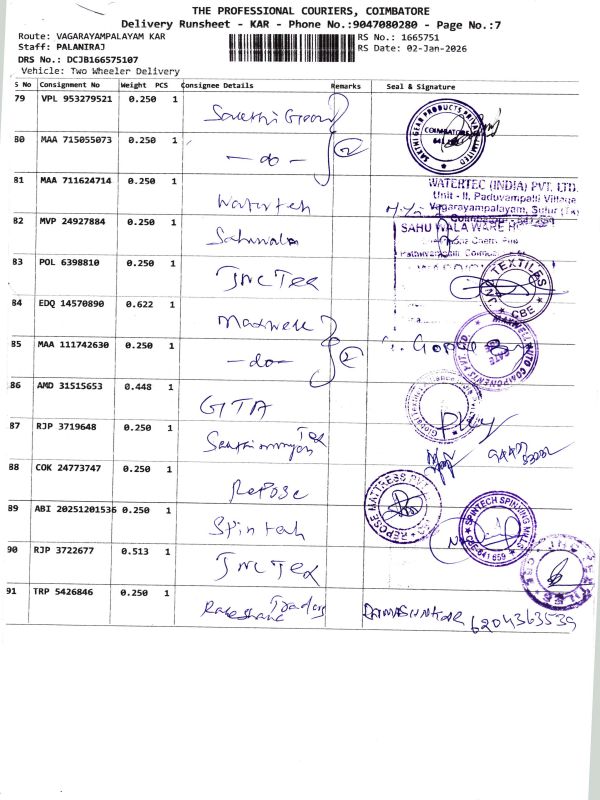 THE PROFESSIONAL COURIERS, COIMBATORE
Delivery Runsheet - KAR - Phone No.:9047080280 - Page No.:7
Route: VAGARAYAMPALAYAM KAR
RS No.: 1665751
Staff: PALANIRAJ
RS Date: 02-Jan-2026
DRS No.: DCJB166575107
Vehicle: Two Wheeler Delivery
S No Consignment No Weight PCS Consignee Details Remarks Seal & Signature
79 VPL 953279521 0.250 1
80 MAA 715055073 0.250 1 -do- 2
SARETHI GEAR PRODUCTS PRIVATE LIMITED
COIMBATORE
81 MAA 711624714 0.250 1 Watertech
WATERTEC (INDIA) PVT. LTD.
Unit - II, Paduvampalli Village
Vagarayampalayam, Sulur (Tk)
82 MVP 24927884 0.250 1 Sahuwala
SAHUWALA WARE
83 POL 6398810 0.250 1 JNC Tex
TEXTILES
CBE
84 EDQ 14570890 0.622 1 Maxwell
85 MAA 111742630 0.250 1 -do- 2
MAXWELL AUTO COMPONENTS PVT. LTD.
86 AMD 31515653 0.448 1 GITA
87 RJP 3719648 0.250 1
88 COK 24773747 0.250 1 Repose
REPOSE MATTRESS PVT.
89 ABI 20251201536 0.250 1 Spintech
SPINTECH SPINNING MILLS
641 659
90 RJP 3722677 0.513 1 JNC Tex
91 TRP 5426846 0.250 1 Traders
6204363539